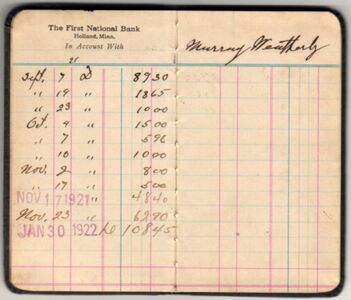 The First National Bank
Holland, Minn.
In Account With
Murray Weatherly
21
Sept. 7 D 8930
" 19 " 1865
" 23 " 1000
Oct. 4 " 1500
" 7 " 596
" 10 " 1000
Nov. 2 " 800
" 17 " 500
NOV 17 1921 " 4840
Nov. 23 " 6290
JAN 30 1922 10845